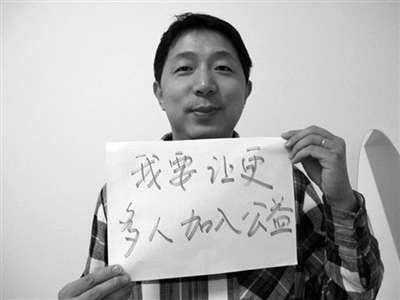 我要让更
多人加入公益